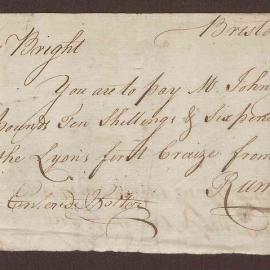 Bristo
Bright
You are to pay Mr John
pounds Ten Shillings & Sixpence
the Lyons first Craize from
Rum